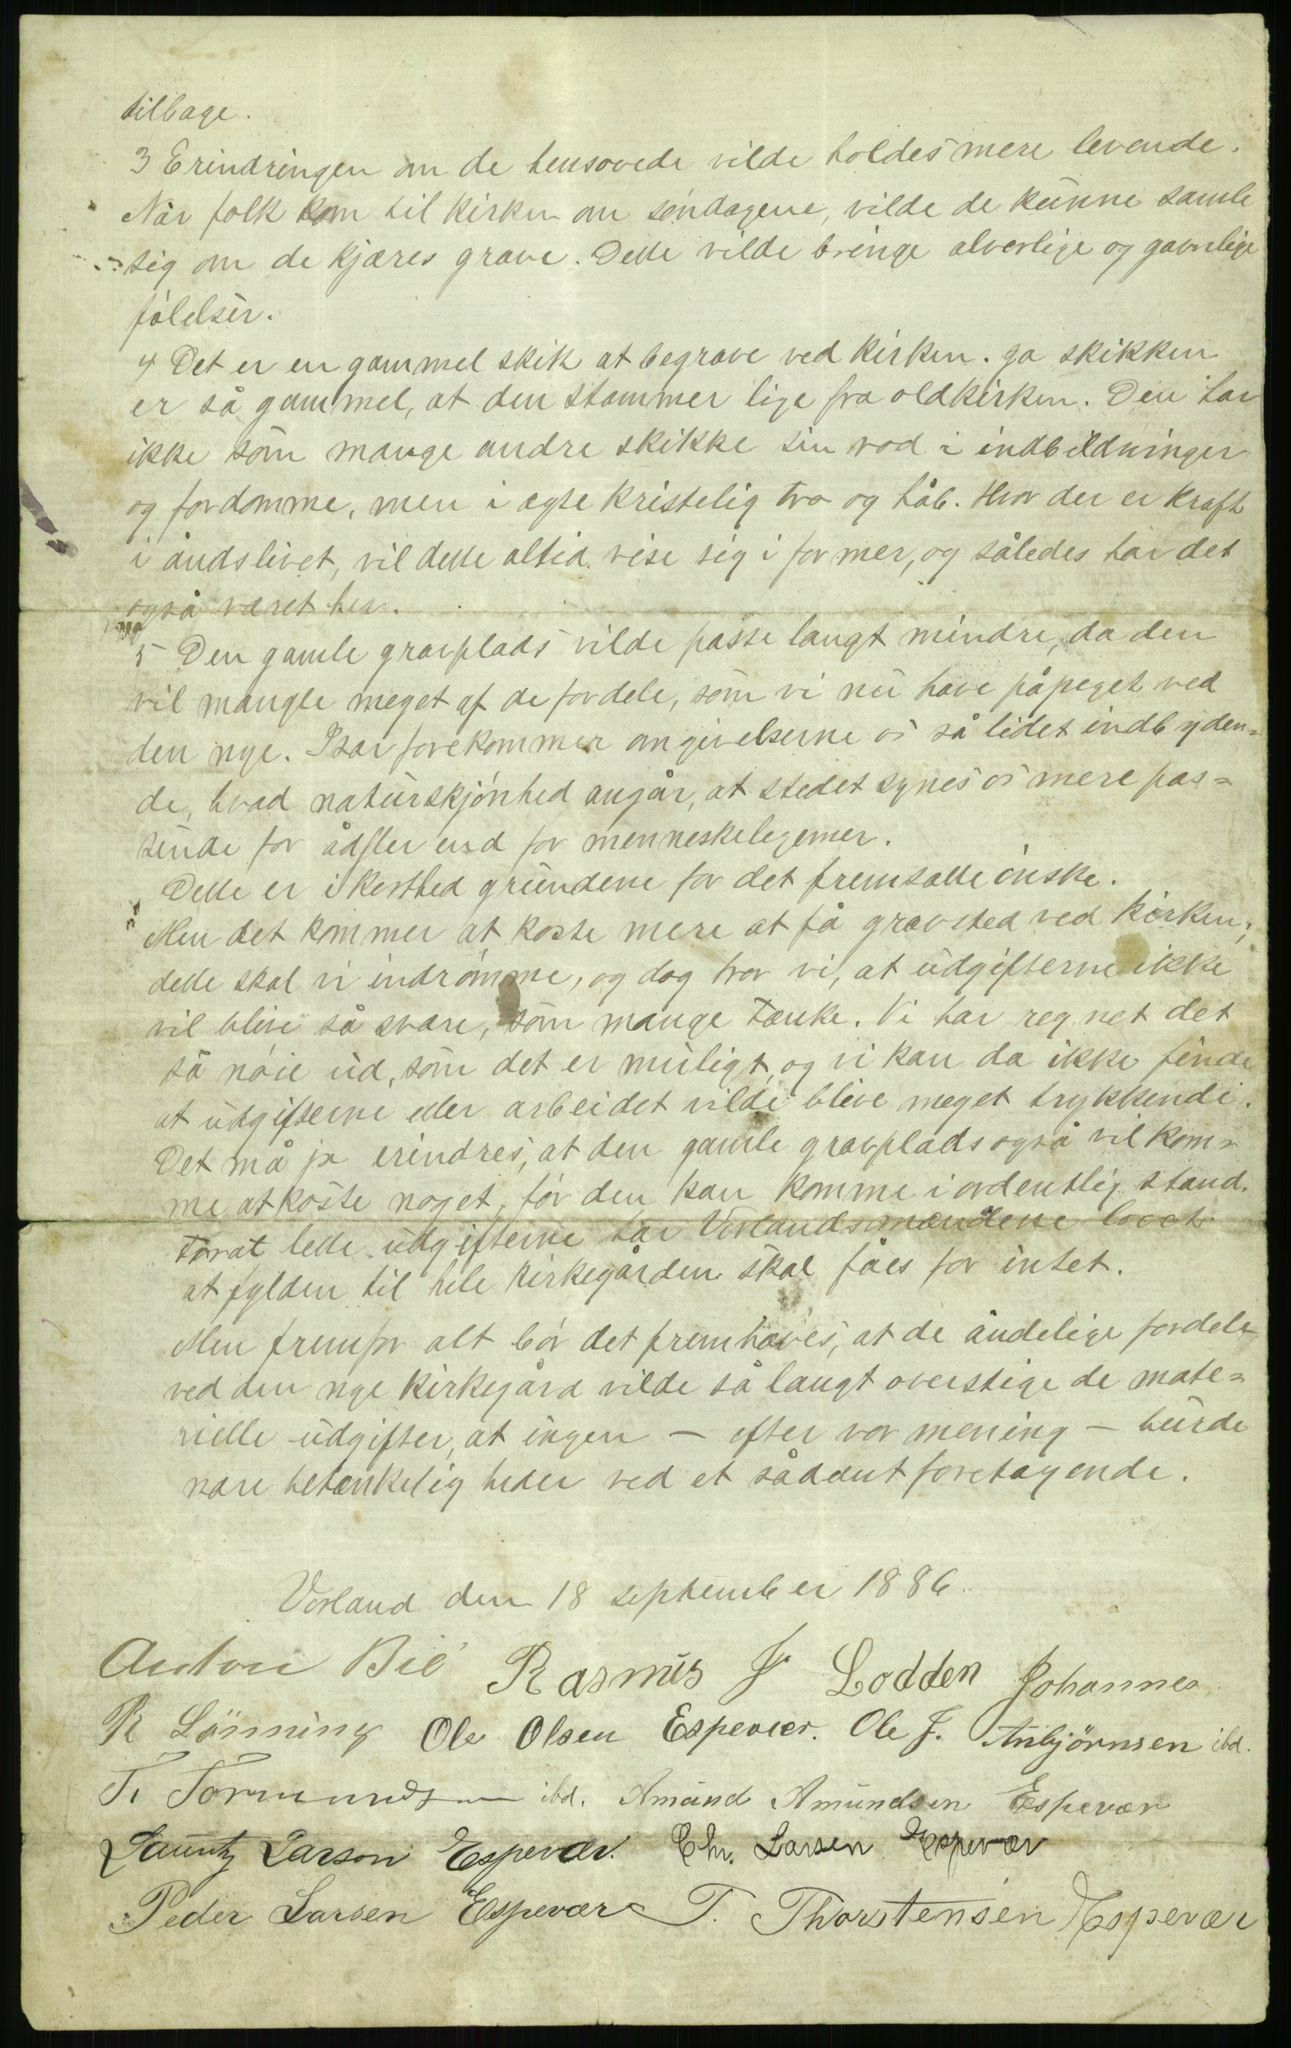 tilbage.
3 Erindringen om de hensovede vilde holdes mere levende.
Når folk kom til kirken om søndagene, vilde de kunne samle
sig om de kjæres grave. Dette vilde bringe alvorlige og gavnlige
følelser.
4 Det er en gammel skik at begrave ved kirken. ja skikken
er så gammel, at den stammer lige fra oldkirken. Den har
ikke som mange andre skikke sin rod i indbildninger
og fordomme, men i ægte kristelig tro og håb. Hvor der er kraft
i åndslivet, vil dette altid vise sig i former, og således har det
også været her.
5 Den gamle gravplads vilde passe langt mindre, da den
vil mangle meget af de fordele, som vi nu have påpeget ved
den nye. Især forekommer omgivelserne os så lidet indbyden-
de, hvad naturskjønhed angår, at stedet synes os mere pas-
sende for ådsler end for menneskelegemer.
Dette er i korthed grundene for det fremsatte ønske.
Men det kommer at koste mere at få gravsted ved kirken;
dette skal vi indrømme, og dog tror vi, at udgifterne ikke
vil blive så svære, som mange tænke. Vi har regnet det
så nøie ud, som det er muligt, og vi kan da ikke finde
at udgifterne eller arbeidet vilde blive meget trykkende.
Det må jo erindres, at den gamle gravplads også vil kom-
me at koste noget, før den kan komme i ordentlig stand.
For at lette udgifterne har Vorlandsmændene lovet
at fylden til hele kirkegården skal fåes for intet.
Men fremfor alt bør det fremhæves, at de åndelige fordele
ved den nye kirkegård vilde så langt overstige de mate-
rielle udgifter, at ingen - efter vor mening - burde
nære betænkeligheder ved et sådant foretagende.
Vorland den 18 september 1886
Anton Bie Rasmus J. Lodden Johannes
R Lønning Ole Olsen Espevær. Ole J. Anbjørnsen ibd.
T. Tormundsen ibd. Amund Amundsen Espevær
Lauritz Larson Espevær. Chr. Larsen Espevær
Peder Larsen Espevær T. Thorstensen Espevær